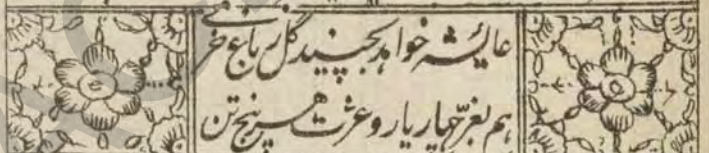 عایشه خواهد بچیند گل ز باغ خرمی
هم بعزّ چهار یار و عزت هر پنج تن